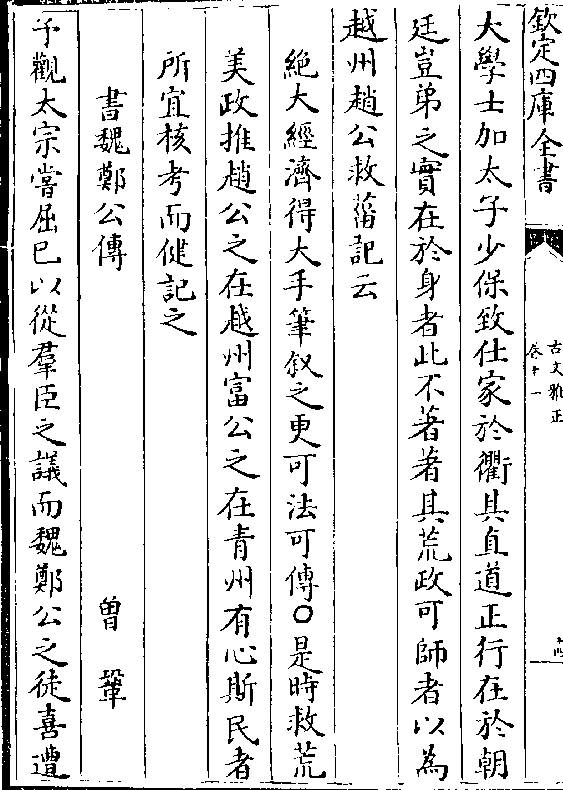 欽定四庫全書
古文雅正
卷十一
大學士加太子少保致仕家於衢其直道正行在於朝
廷豈弟之實在於身者此不著著其荒政可師者以為
越州趙公救菑記云
絶大經濟得大手筆叙之更可法可傳○是時救荒
美政推趙公之在越州富公之在青州有心斯民者
所宜核考而健記之
書魏鄭公傳
曾鞏
予觀太宗嘗屈已以從羣臣之議而魏鄭公之徒喜遭